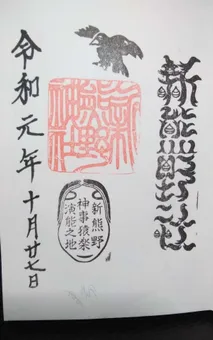 新熊野神社
新熊野神社
新熊野
神事猿楽
演能之地
令和元年十月廿七日